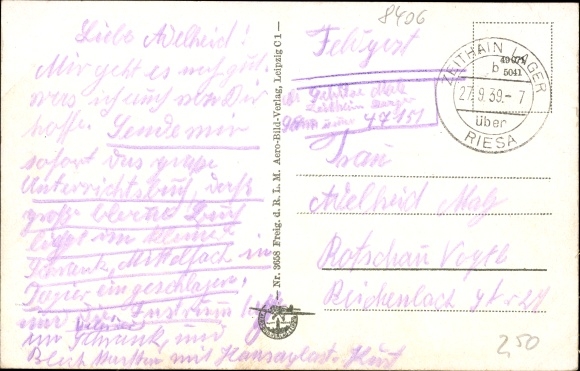 8406
Liebe Adelheid!
Mir geht es noch gut
was ich auch von Dir
hoffe. Sende mir
sofort das große
Unterrichtsbuch, das
große blaue Buch
liegt im kleinen
Schrank, Mittelfach in
Papier eingeschlagen,
und die
im Schrank und
Blech mit Hansaplast. Kurt
Nr. 3658 Freig. d. R. L. M. Aero-Bild-Verlag, Leipzig C 1
Feldpost
Zeithain Lager
47151
ZEITHAIN LAGER
b
5041
27.9.39.-7
über
RIESA
Frau
Adelheid
Rotschau Vogtl
Reichenbach
2,50